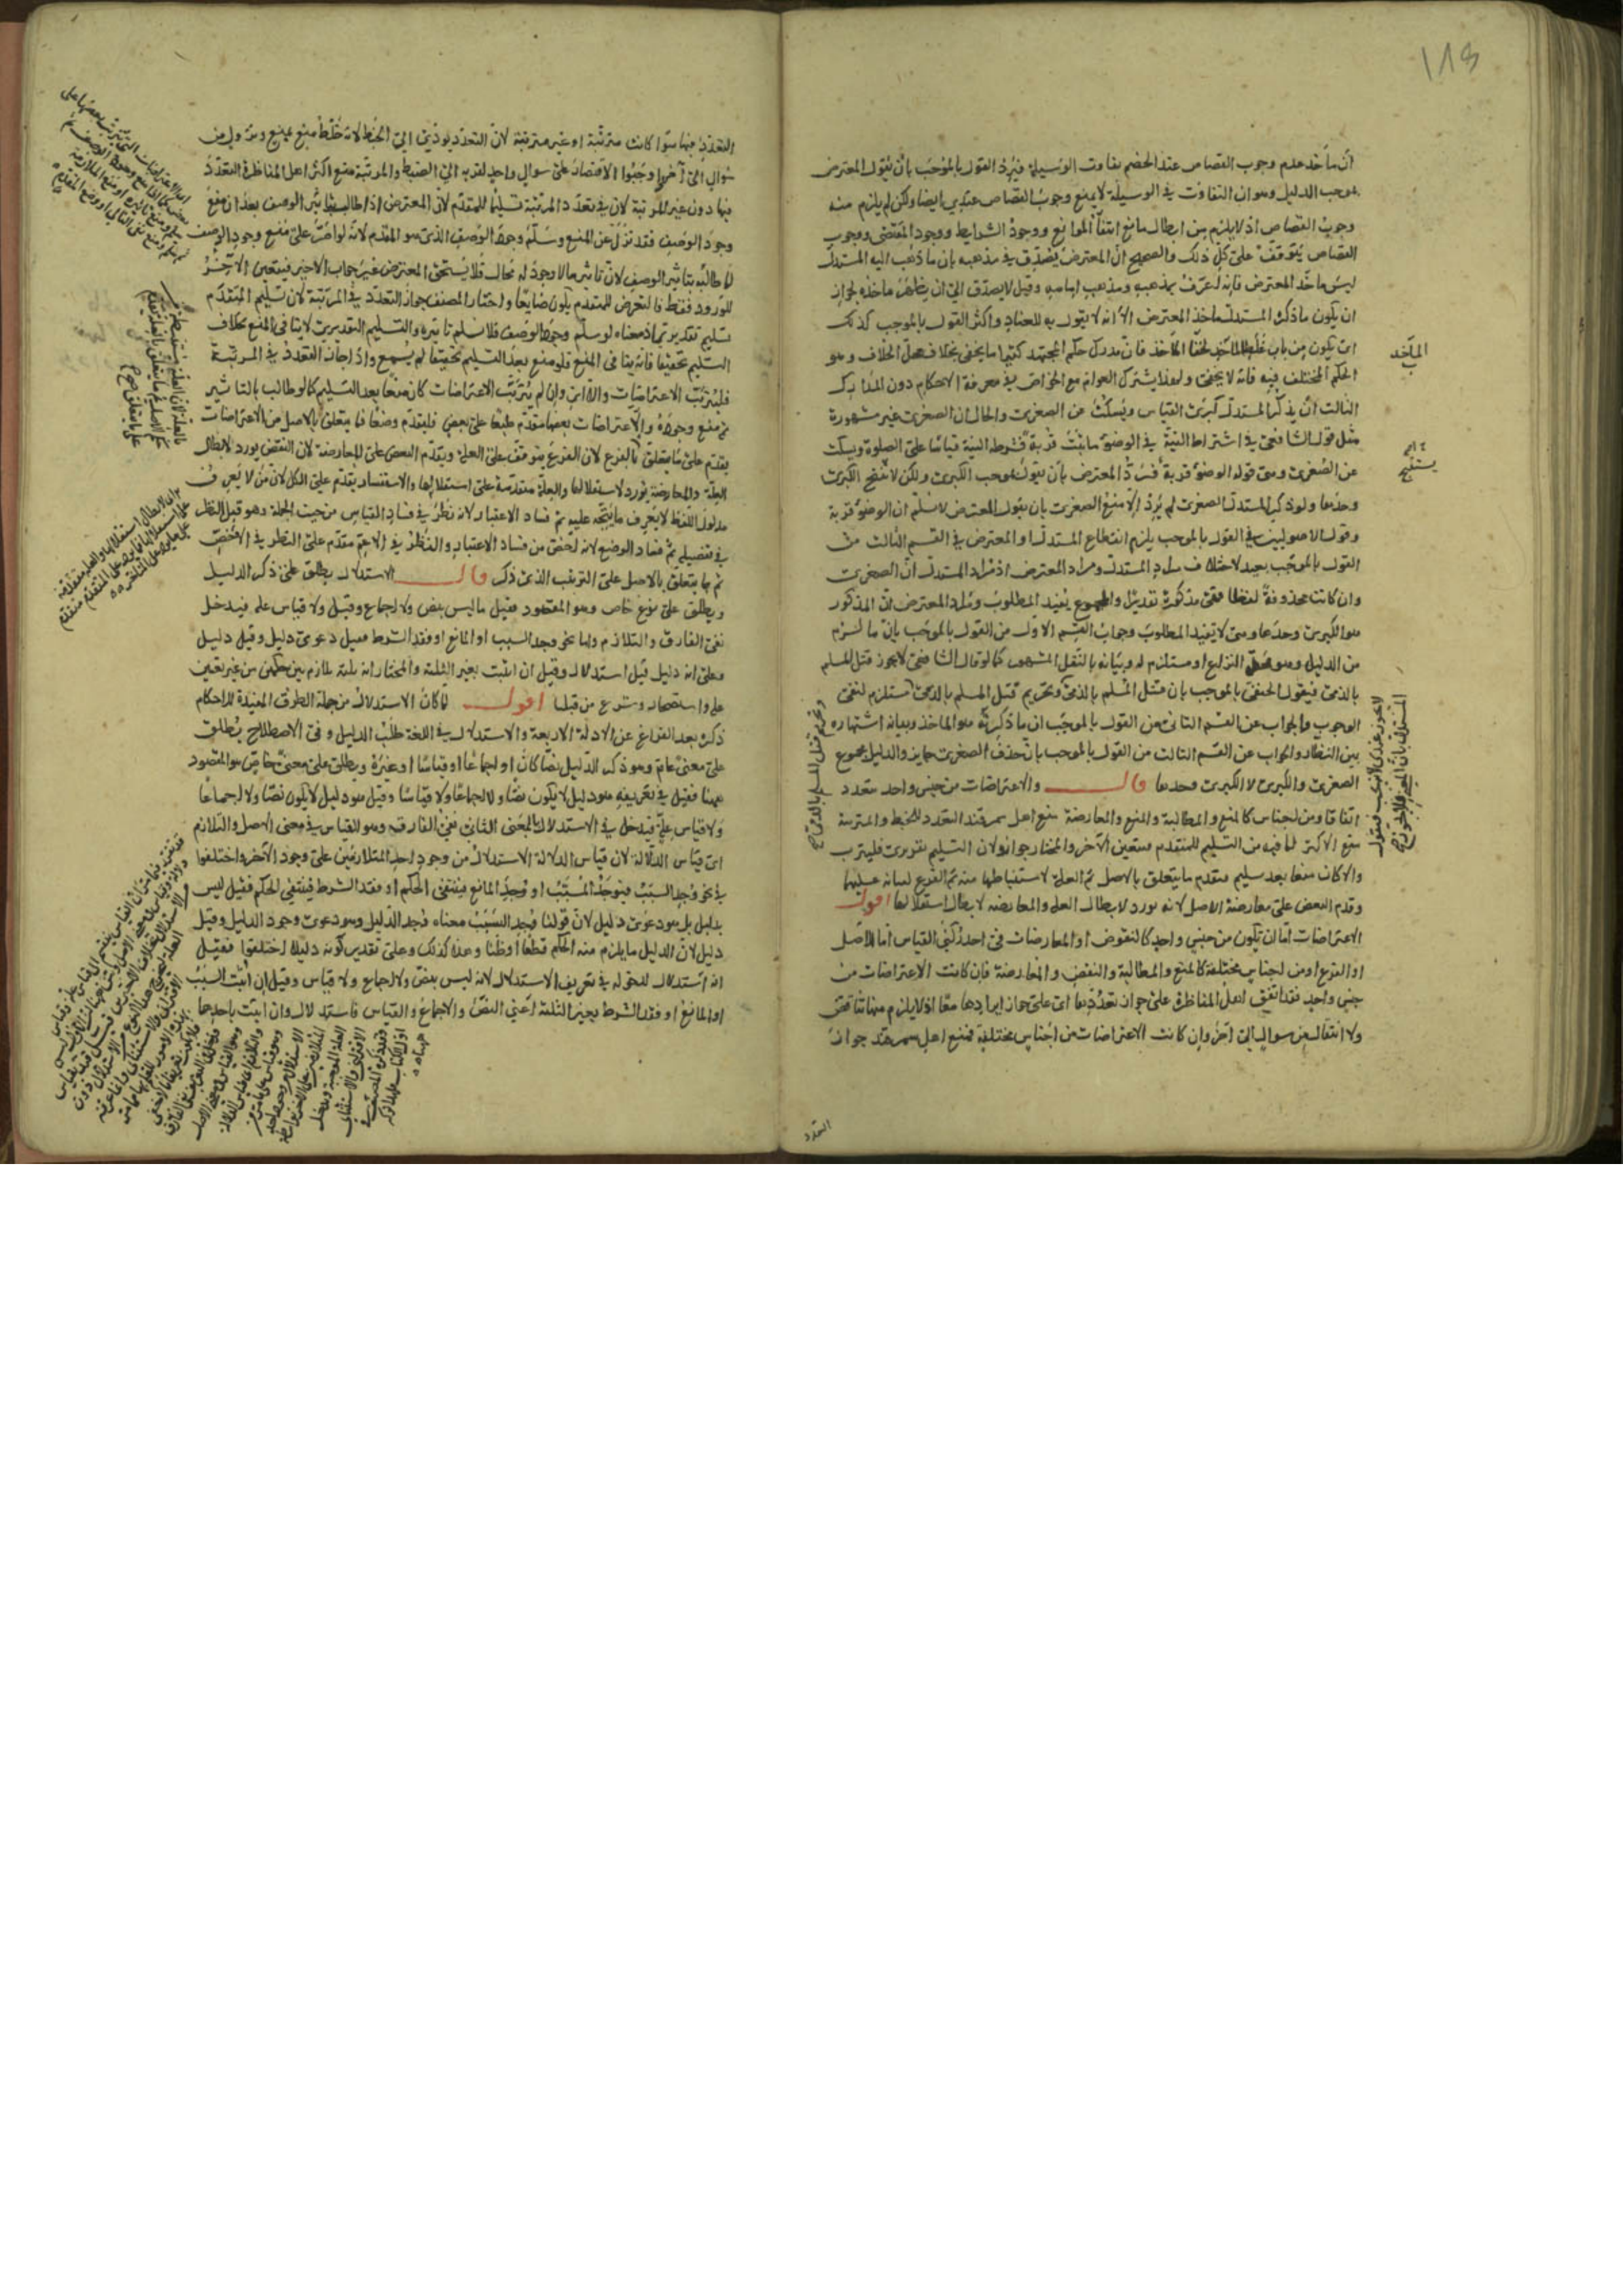 ١٧٥
أن مأخذ عدم وجوب القصاص عند الخصم تفاوت الوسيلة فيرد القول بالموجب بأن يقول المعترض
بموجب الدليل وهو ان التفاوت في الوسيلة لا يمنع وجوب القصاص عندي ايضا ولكن لم يلزم منه
وجوب القصاص اذ لا يلزم من ابطال مانع انتفاء الموانع ووجود الشرايط ووجود المقتضي ووجوب
القصاص يتوقف على كل ذلك والصحيح ان المعترض يصدق في مذهبه بان ما ذهب اليه المستدل
ليس مأخذ المعترض فانه اعرف بمذهبه ومذهب امامه وقيل لا يصدق الى ان يظهر مأخذه لجواز
ان يكون ما ذكره المستدل مأخذ المعترض الا انه لا يقول به للعناد واكثر القول بالموجب كذلك
اي يكون من باب غلط المأخذ لخفاء المأخذ فان مدرك حكم المجتهد كثيرا ما يخفى بخلاف محل الخلاف وهو
الحكم المختلف فيه فانه لا يخفى ولهذا يشترك العوام مع الخواص في معرفة الاحكام دون المدارك
الثالث ان يذكر المستدل كبرى القياس ويسكت عن الصغرى والحال ان الصغرى غير مشهورة
مثل قول الشافعي في اشتراط النية في الوضوء ما يثبت قربة فشرطه النية قياسا على الصلوة ويسكت
عن الصغرى وهي قوله الوضوء قربة فيرد المعترض بأن يقول بموجب الكبرى ولكن لا تنتج الكبرى
وحدها ولو ذكر المستدل الصغرى لم يرد الا منع الصغرى بان يقول المعترض لا نسلم ان الوضوء قربة
وقول الاصوليين في القول بالموجب يلزم انقطاع المستدل او المعترض في القسم الثالث من
القول بالموجب بعيد لاختلاف مراد المستدل ومراد المعترض اذ مراد المستدل ان الصغرى
وان كانت محذوفة لفظا فهي مذكورة تقديرا والمجموع يفيد المطلوب ومراد المعترض ان المذكور
هو الكبرى وحدها وهي لا تفيد المطلوب وجواب القسم الاول من القول بالموجب بان ما لزم
من الدليل وهو محل النزاع او مستلزم له وبيانه بالنقل المشهور كما لو قال الشافعي لا يجوز قتل المسلم
بالذمي فيقول الحنفي بالموجب بان قتل المسلم بالذمي وتحريم قتل المسلم بالذمي مستلزم لنفي
الوجوب والجواب عن القسم الثاني من القول بالموجب ان ما ذكرته هو المأخذ وبيانه اشتهاره
بين النظار والجواب عن القسم الثالث من القول بالموجب بان حذف الصغرى جايز والدليل مجموع
الصغرى والكبرى لا الكبرى وحدها قال والاعتراضات من جنس واحد متعدد
اتفاقا ومن اجناس كالمنع والمطالبة والمنع والمعارضة منع اهل سمرقند التعدد للخبط والمترتبة
منع الاكثر لما فيه من التسليم للمتقدم فتعين الآخر والمختار جوازه لان التسليم تقديري فليترتب
والا كان منعا بعد تسليم فيقدم ما يتعلق بالاصل ثم العلة لاستنباطها منه ثم الفرع لبنائه عليهما
وقدم النقض على معارضة الاصل لانه يورد لابطال العلة والمعارضة لابطال استقلالها اقول
الاعتراضات اما ان تكون من جنس واحد كالنقوض او المعارضات في احد ركني القياس اما الاصل
او الفرع او من اجناس مختلفة كالمنع والمطالبة والنقض والمعارضة فان كانت الاعتراضات من
جنس واحد فقد اتفق اهل المناظرة على جواز تعددها اي على جواز ايرادها معا اذ لا يلزم منها تناقض
ولا انتقال من سوال الى آخر وان كانت الاعتراضات من اجناس مختلفة فمنع اهل سمرقند جواز
التعدد
المأخذ
التعدد فيها سواء كانت مترتبة او غير مترتبة لان التعدد يؤدي الى الخبط لانه خلط منع بمنع وعدول من
سوال الى آخر واوجبوا الاقتصار على سوال واحد لقربه الى الضبط والمرتبة منع اكثر اهل المناظرة التعدد
فيها دون غير المرتبة لان في تعدد المرتبة تسليما للمتقدم لان المعترض اذا طالب بتأثير الوصف بعد ان منع
وجود الوصف فقد نزل عن المنع وسلم وجود الوصف الذي هو المقدم لانه لو اصر على منع وجود الوصف
لما طالبه بتأثير الوصف لان تأثير ما لا وجود له محال فلا يستحق المعترض غير جواب الاخير فيتعين الآخر
للورود فقط فالتعرض للمتقدم يكون ضايعا واختار المصنف جواز التعدد في المرتبة لان تسليم المتقدم
تسليم تقديري اذ معناه لو سلم وجود الوصف فلا نسلم تاثيره والتسليم التقديري لا ينافي المنع بخلاف
التسليم تحقيقا فانه ينافي المنع فلو منع بعد التسليم تحقيقا لم يسمع واذا جاز التعدد في المرتبة
فليترتب الاعتراضات والا اي وان لم يترتب الاعتراضات كان منعا بعد التسليم كما لو طالب بالتاثير
ثم منع وجوده والاعتراضات بعضها مقدم طبعا على بعض فليقدم وضعا فما يتعلق بالاصل من الاعتراضات
يقدم على ما يتعلق بالفرع لان الفرع يتوقف على العلة ويقدم النقض على المعارضة لان النقض يورد لابطال
العلة والمعارضة يورد لاستقلالها والعلة مقدمة على استقلالها والاستفسار يقدم على الكل لان من لا يعرف
مدلول اللفظ لا يعرف ما يتجه عليه ثم فساد الاعتبار لانه نظر في فساد القياس من حيث الجملة وهو قبل النظر
في تفصيله ثم فساد الوضع لانه اخص من فساد الاعتبار والنظر في الاعم مقدم على النظر في الاخص
ثم ما يتعلق بالاصل على الترتيب الذي ذكر قال الاستدلال يطلق على ذكر الدليل
ويطلق على نوع خاص وهو المقصود فقيل ما ليس بنص ولا اجماع وقيل ولا قياس علة فيدخل
نفي الفارق والتلازم واما نحو وجد السبب او المانع او فقد الشرط فقيل دعوى دليل وقيل دليل
وعلى انه دليل قيل استدلال وقيل ان اثبت بغير الثلثة والمختار انه ثلثة تلازم بين حكمين من غير تعيين
علة واستصحاب وشرع من قبلنا اقول لما كان الاستدلال من جملة الطرق المفيدة للاحكام
ذكره بعد الفراغ عن الادلة الاربعة والاستدلال في اللغة طلب الدليل وفي الاصطلاح يطلق
على معنى عام وهو ذكر الدليل نصا كان او اجماعا او قياسا او غيره ويطلق على معنى خاص هو المقصود
ههنا فقيل في تعريفه هو دليل لا يكون نصا ولا اجماعا ولا قياسا وقيل هو دليل لا يكون نصا ولا اجماعا
ولا قياس علة فيدخل في الاستدلال بالمعنى الثاني نفي الفارق وهو القياس في معنى الاصل والتلازم
اي قياس الدلالة لان قياس الدلالة الاستدلال من وجود احد المتلازمين على وجود الآخر واختلفوا
في نحو وجد السبب فيوجد المسبب او وجد المانع فينتفي الحكم او فقد الشرط فينتفي الحكم فقيل ليس
بدليل بل هو دعوى دليل لان قولنا وجد السبب معناه وجد الدليل وهو دعوى وجود الدليل وقيل
دليل لان الدليل ما يلزم منه الحكم قطعا او ظنا وهذا كذلك وعلى تقدير كونه دليلا اختلفوا فقيل
انه استدلال لدخوله في تعريف الاستدلال لانه ليس بنص ولا اجماع ولا قياس وقيل ان اثبت السبب
او المانع او فقد الشرط بغير الثلثة اعني النص والاجماع والقياس فاستدلال وان اثبت باحدها